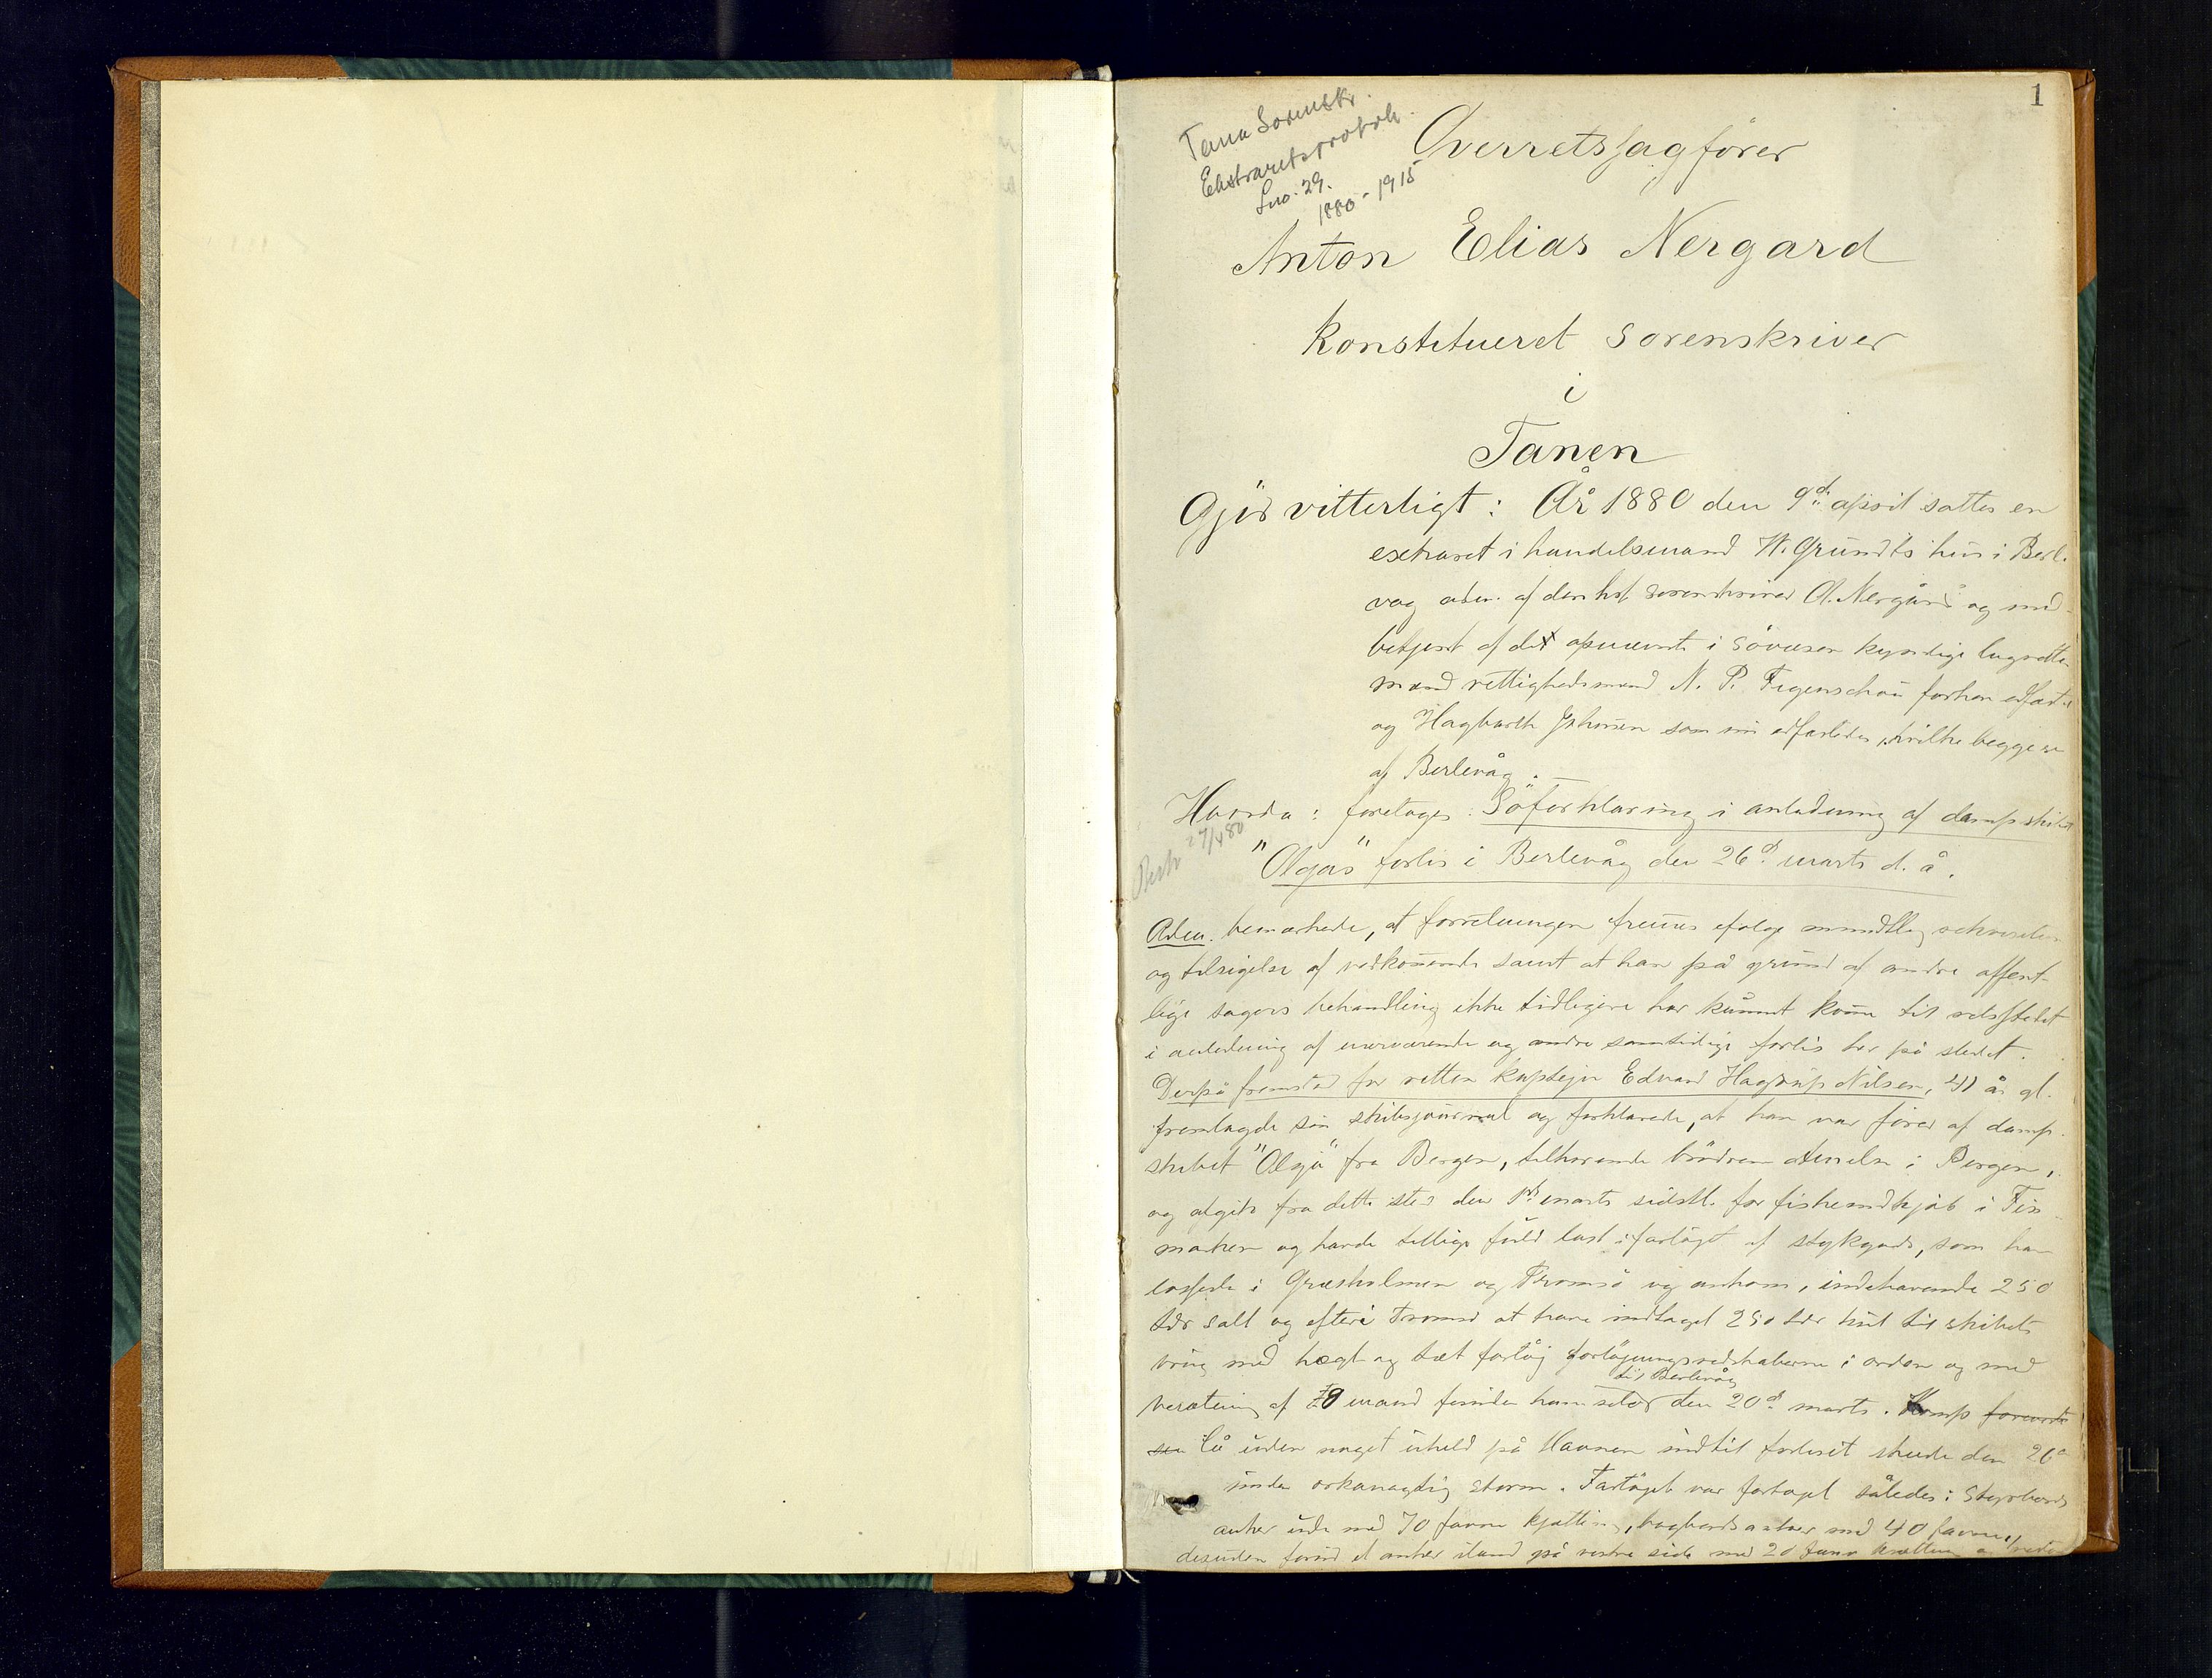 1
Tana Sorenskr.
Ekstraretsprotok.
Lno. 29.
1880-1915
Overretssagfører
Anton Elias Nergard
Konstitueret sorenskriver
i
Tanen
Gjör vitterligt: År 1880 den 9d. april sattes en
extraret i handelsmand W. Grundts hus i Berl-
vag adm. af den kst sorenskriver A. Nergård og med-
betjent af det opnævnte i søvæsen kyndige lagrette-
mænd rettighedsmand N. P. Figenschou forhen edfæst
og Hagbarth Johnsen som nu edfæstedes, hvilke begge er
af Berlevåg.
Hvorda: foretages: Söforklaring i anledning af dampskibet
"Olgas" forlis i Berlevåg den 26d. marts d. å.
Phst 27/4 80
Adm. bemærkede, at forretningen fremes ifølge mundtlig rekvisition
og tilsigelse af vedkommende samt at han på grund af andre offent-
lige sagers behandling ikke tidligere har kunnet komme til retsstedet
i anledning af nærværende og andre samtidige forlis her på stedet.
Derpå fremstod for retten kaptejn Edvard Hagerup Nilsen, 41 år gl.
fremlagde sin skibsjournal og forklarede, at han var fører af damp-
skibet "Olga" fra Bergen, tilhørende brödrene i Bergen,
og afgik fra dette sted den 1ste marts sidstl. for fiskeindkjöb i Fin-
marken og havde tillige fuld last i fartöjet af stykgods, som han
lossede i Græsholmen og Tromsö og ankom, indehavende 250
tdr salt og efter i Tromsö at have indtaget 250 tdr kul til skibets
brug med tægt og tæt fartöj fortöjningsredskaberne i orden og med
til Berlevåg
besætning af 8 mand foruden ham selv den 20d. marts. Komp forværte
sen lå uden noget uheld på Havnen indtil forliset skede den 26d
under orkanagtig storm. Fartöjet var fortöjet således: Styrbords
anker ude med 70 favne kjætting, bagbords anker med 40 favne,
desuden forud et anker iland på vestre side med 20 favne kjætting